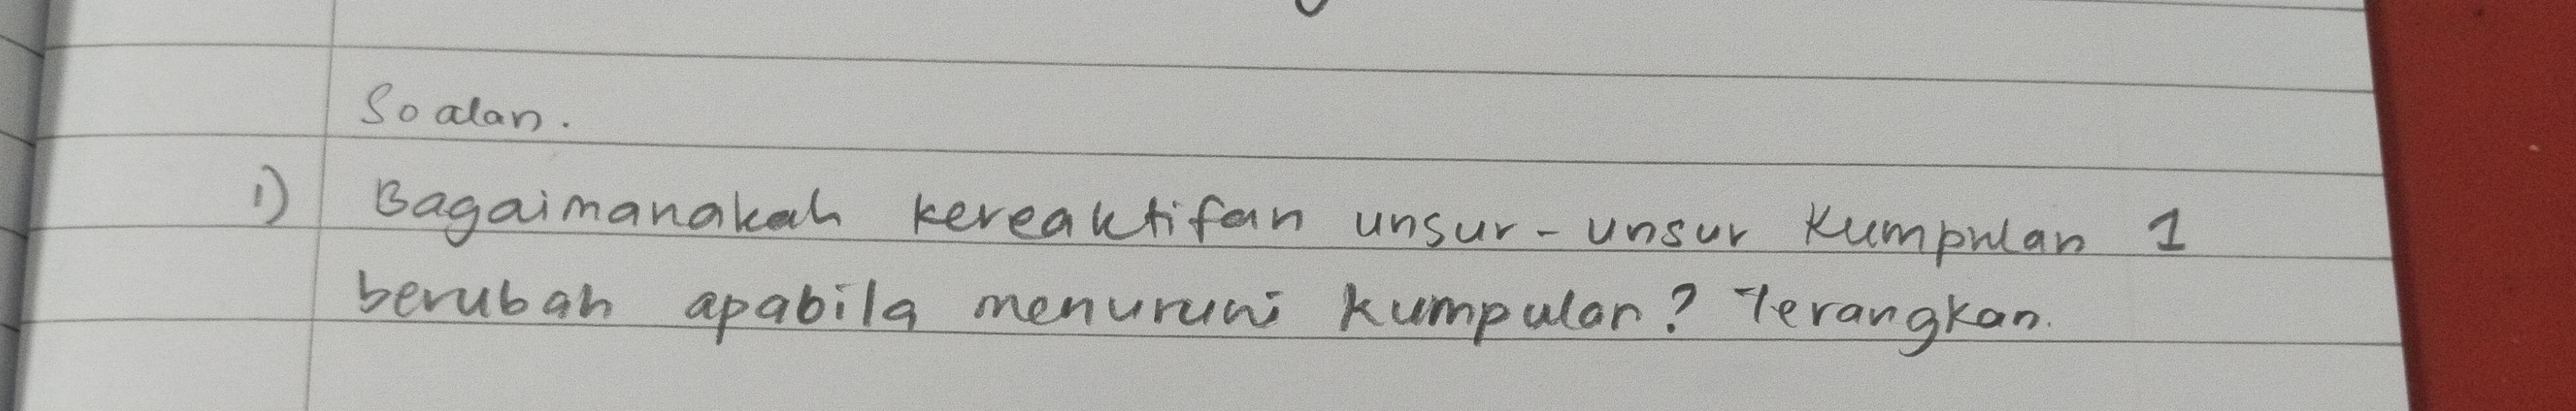 Soalan.
1) Bagaimanakah kereaktifan unsur-unsur Kumpulan 1
berubah apabila menuruni kumpulan? Terangkan.